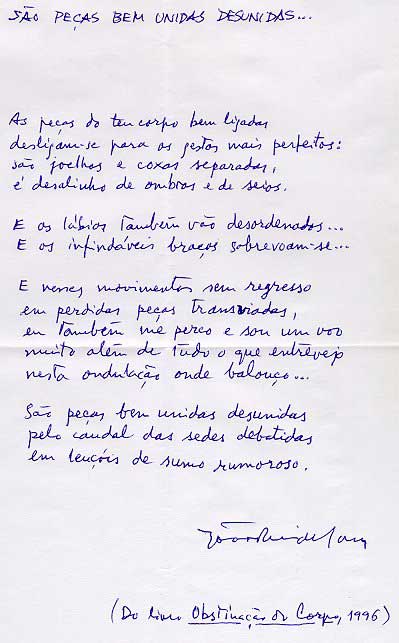 SÃO PEÇAS BEM UNIDAS DESUNIDAS...
As peças do teu corpo bem ligadas
desligam-se para os gestos mais perfeitos:
são joelhos e coxas separadas,
é desalinho de ombros e de seios.
E os lábios também vão desordenados...
E os infindáveis braços sobrevoam-se...
E nesses movimentos sem regresso
em perdidas peças transviadas,
eu também me perco e sou um voo
muito além de tudo o que entrevejo
nesta ondulação onde balouço...
São peças bem unidas desunidas
pelo caudal das sedes debatidas
em lençóis de sumo rumoroso.
(Do livro Obstinação do Corpo, 1996)